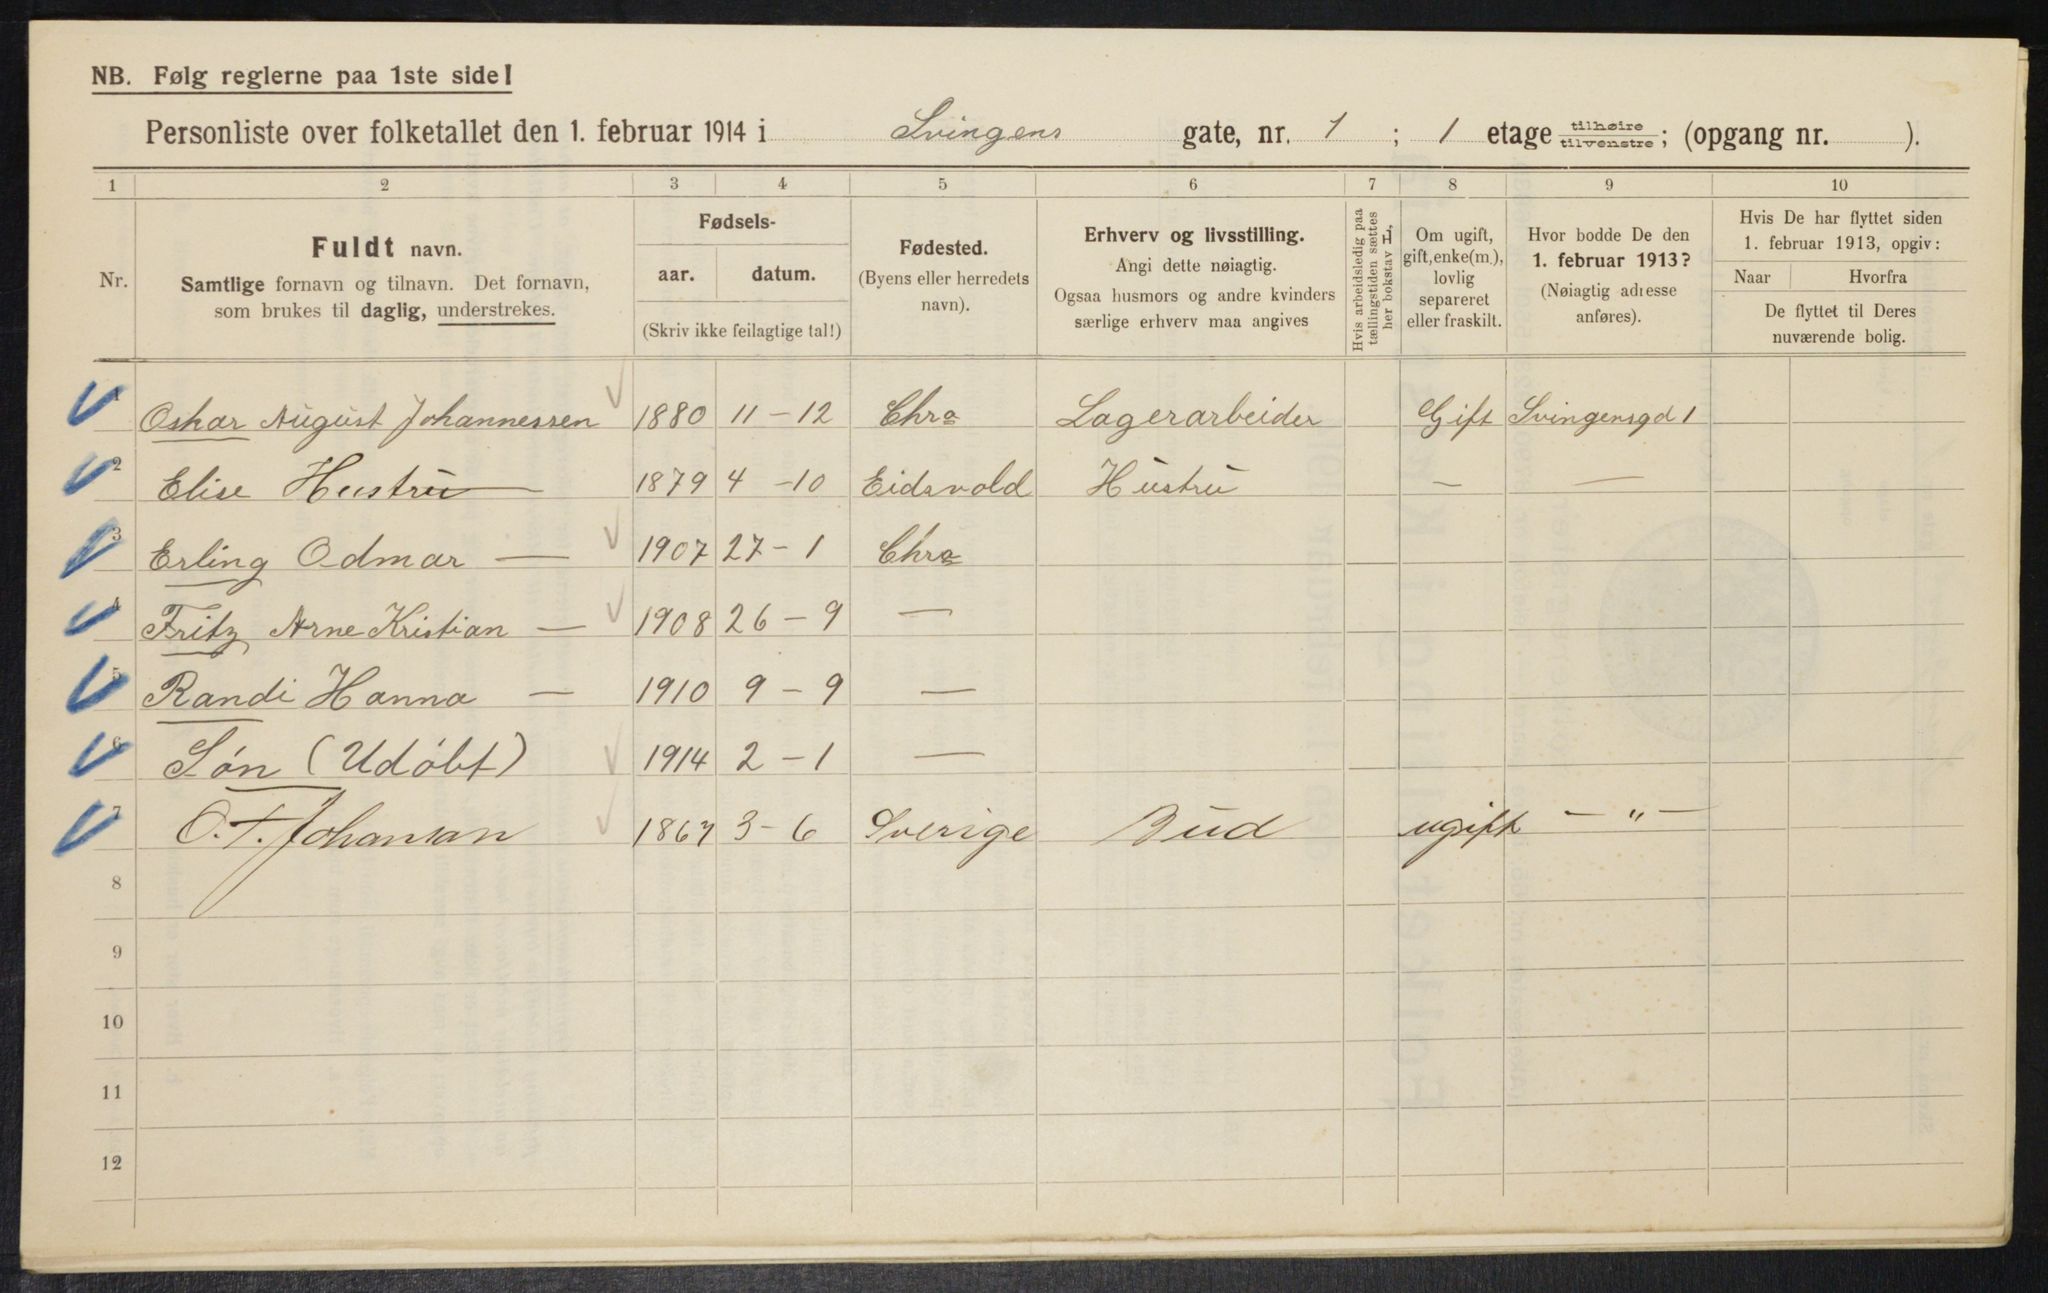 NB. Følg reglerne paa 1ste side!
Personliste over folketallet den 1. februar 1914 i Svingens gate, nr. 1 ; 1 etage tilhøire tilvenstre; (opgang nr. ).
1 2 3 4 5 6 7 8 9 10
Nr.
Fuldt navn.
Samtlige fornavn og tilnavn. Det fornavn,
som brukes til daglig, understrekes.
Fødsels-
aar. datum.
(Skriv ikke feilagtige tal!)
Fødested.
(Byens eller herredets
navn).
Erhverv og livsstilling.
Angi dette nøiagtig.
Ogsaa husmors og andre kvinders
særlige erhverv maa angives
Hvis arbeidsledig paa
tællingstiden sættes
her bokstav H.
Om ugift,
gift, enke(m.),
lovlig
separeret
eller fraskilt.
Hvor bodde De den
1. februar 1913?
(Nøiagtig adresse
anføres).
Hvis De har flyttet siden
1. februar 1913, opgiv:
Naar Hvorfra
De flyttet til Deres
nuværende bolig.
1 Oskar August Johannessen 1880 11 – 12 Chra Lagerarbeider Gift Svingensgd 1
2 Elise Hustru — 1879 4 – 10 Eidsvold Hustru — —
3 Erling Odmar — 1907 27 – 1 Chra
4 Fritz Arne Kristian — 1908 26 – 9 —
5 Randi Hanna — 1910 9 – 9 —
6 Søn (Udøbt) 1914 2 – 1 —
7 O. F. Johansan 1867 3 – 6 Sverige Bud ugift — " —
8
9
10
11
12